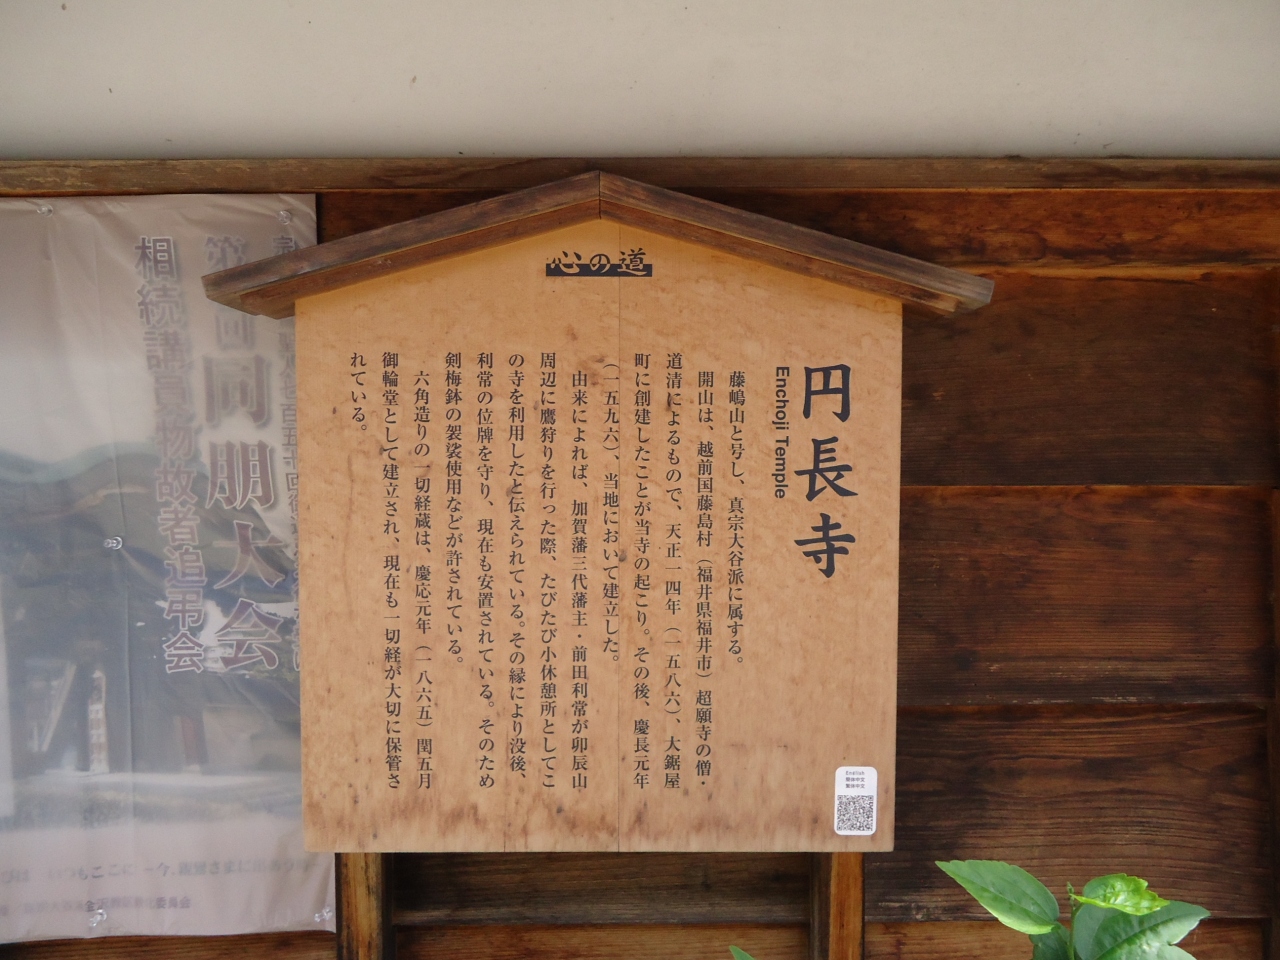 心の道
円長寺
Enchoji Temple
藤嶋山と号し、真宗大谷派に属する。
開山は、越前国藤島村（福井県福井市）超願寺の僧・
道清によるもので、天正一四年（一五八六）、大鋸屋
町に創建したことが当寺の起こり。その後、慶長元年
（一五九六）、当地において建立した。
由来によれば、加賀藩三代藩主・前田利常が卯辰山
周辺に鷹狩りを行った際、たびたび小休憩所としてこ
の寺を利用したと伝えられている。その縁により没後、
利常の位牌を守り、現在も安置されている。そのため
剣梅鉢の袈裟使用などが許されている。
六角造りの一切経蔵は、慶応元年（一八六五）閏五月
御輪堂として建立され、現在も一切経が大切に保管さ
れている。
English
繁体中文
簡体中文
同朋大会
相続講員物故者追弔会
いつもここに